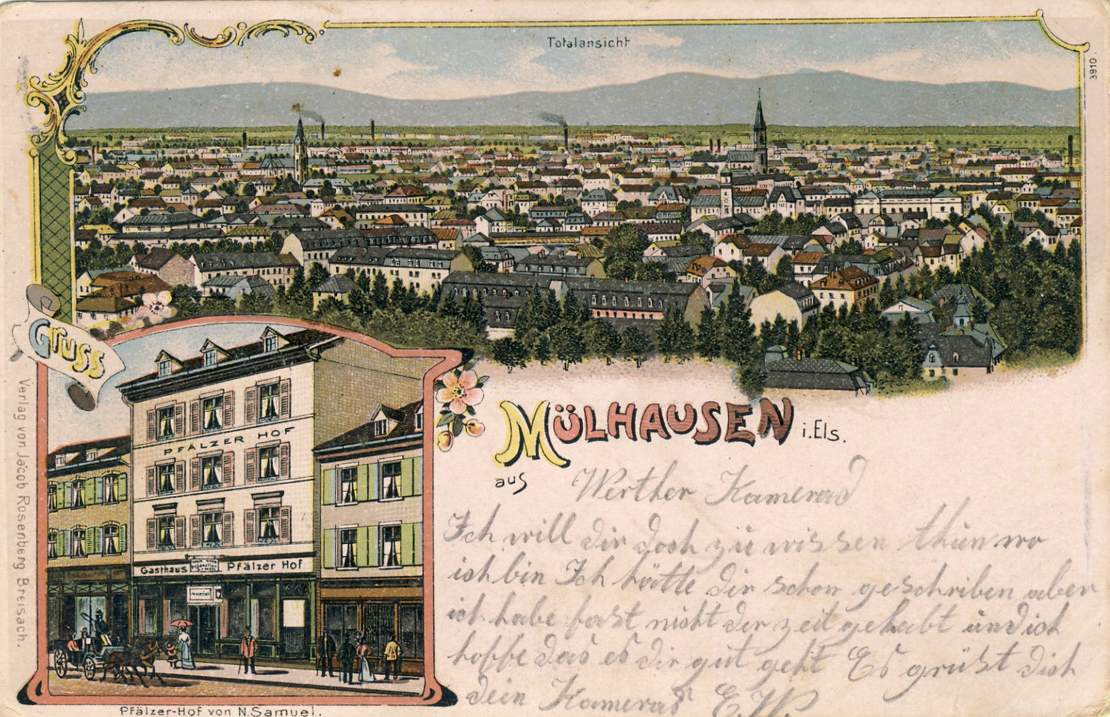 Totalansicht
3910
Gruss
aus
MÜLHAUSEN i. Els.
Verlag von Jacob Rosenberg Breisach.
PFÄLZER HOF
Gasthaus Pfälzer Hof
Pfälzer-Hof von N. Samuel.
Werther Kamerad
Ich will dir doch zü wissen thün wo
ich bin Ich hätte dir schon geschriben aber
ich habe fast nicht der zeit gehabt ünd ich
hoffe das es dir güt geht Es grüßt dich
dein Kamerad E.W.